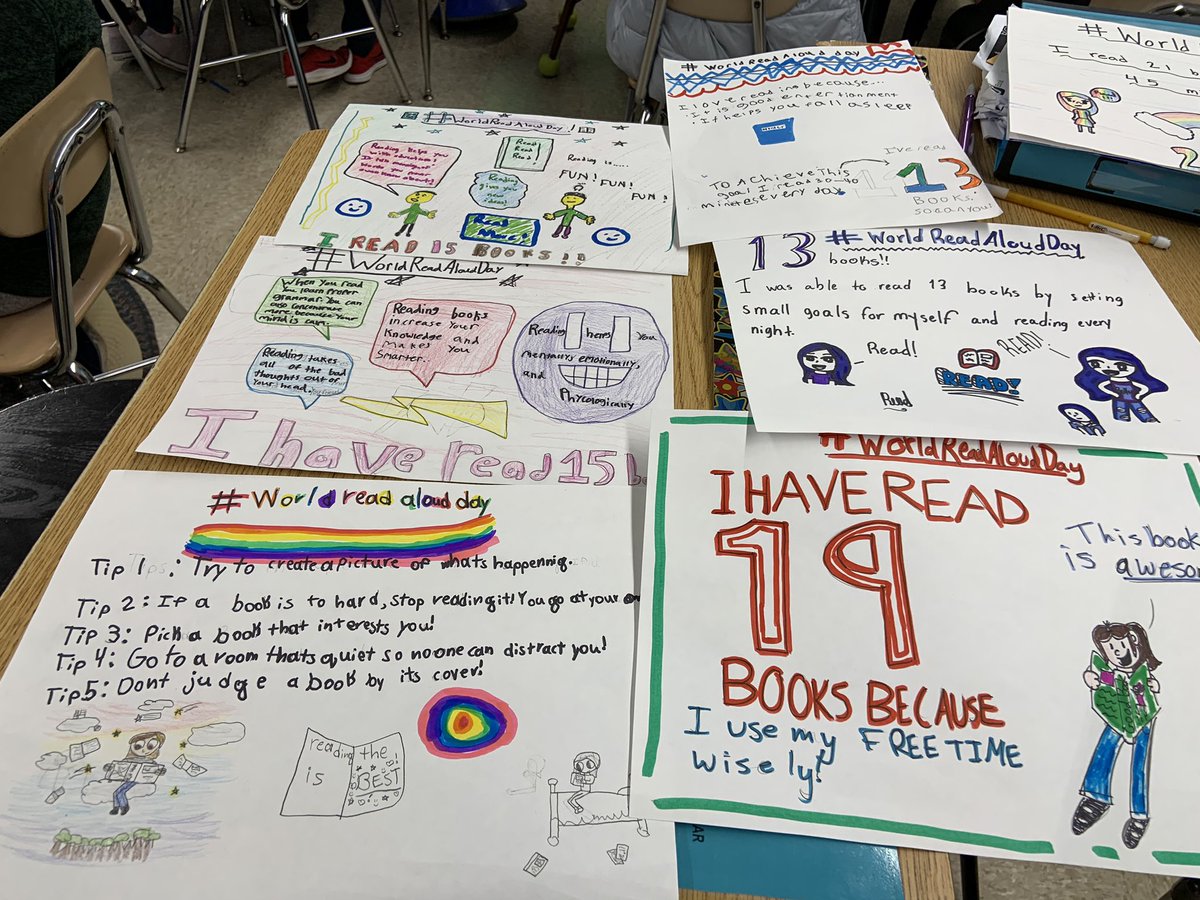 #WorldReadAloudDay!
Reading helps you
with education!
Read!
Read!
Read!
Reading
gives you
new
ideas!
Reading is....
FUN! FUN!
FUN!
I READ 15 BOOKS!!
#WorldReadAloudday
I love reading because...
It is good entertionment
It helps you fall asleep
TO AcHieve THis
goal I read 30-40
minetes every day
I've read
13
BOOKS.
so can you!
#World
I read 21 b
45 m
#WorldReadAloudDay
When you read
You learn proper
grammar. You can
also
more because your
mind is calm
Reading books
increase your
Knowledge and
makes you
Smarter.
Reading takes
all of the bad
thoughts out of
Your head.
Reading helps You
mentally, emotionally,
and
Phycologically
I have read 15 b
13 #WorldReadAloudDay
books!!
I was able to read 13 books by setting
small goals for myself and reading every
night.
Read!
READ!
READ!
Read
#World read aloud day
Tip 1: Try to create a picture of whats happennig.
Tip 2: If a book is to hard, stop reading it! You go at your
Tip 3: Pick a book that interests you!
Tip 4: Go to a room thats quiet so no one can distract you!
Tip5: Dont judge a book by its cover!
reading
is
the
BEST
#WorldReadAloudDay
I HAVE READ
19
BOOKS BECAUSE
I use my FREE TIME
wisely!
This book
is aweso
AR